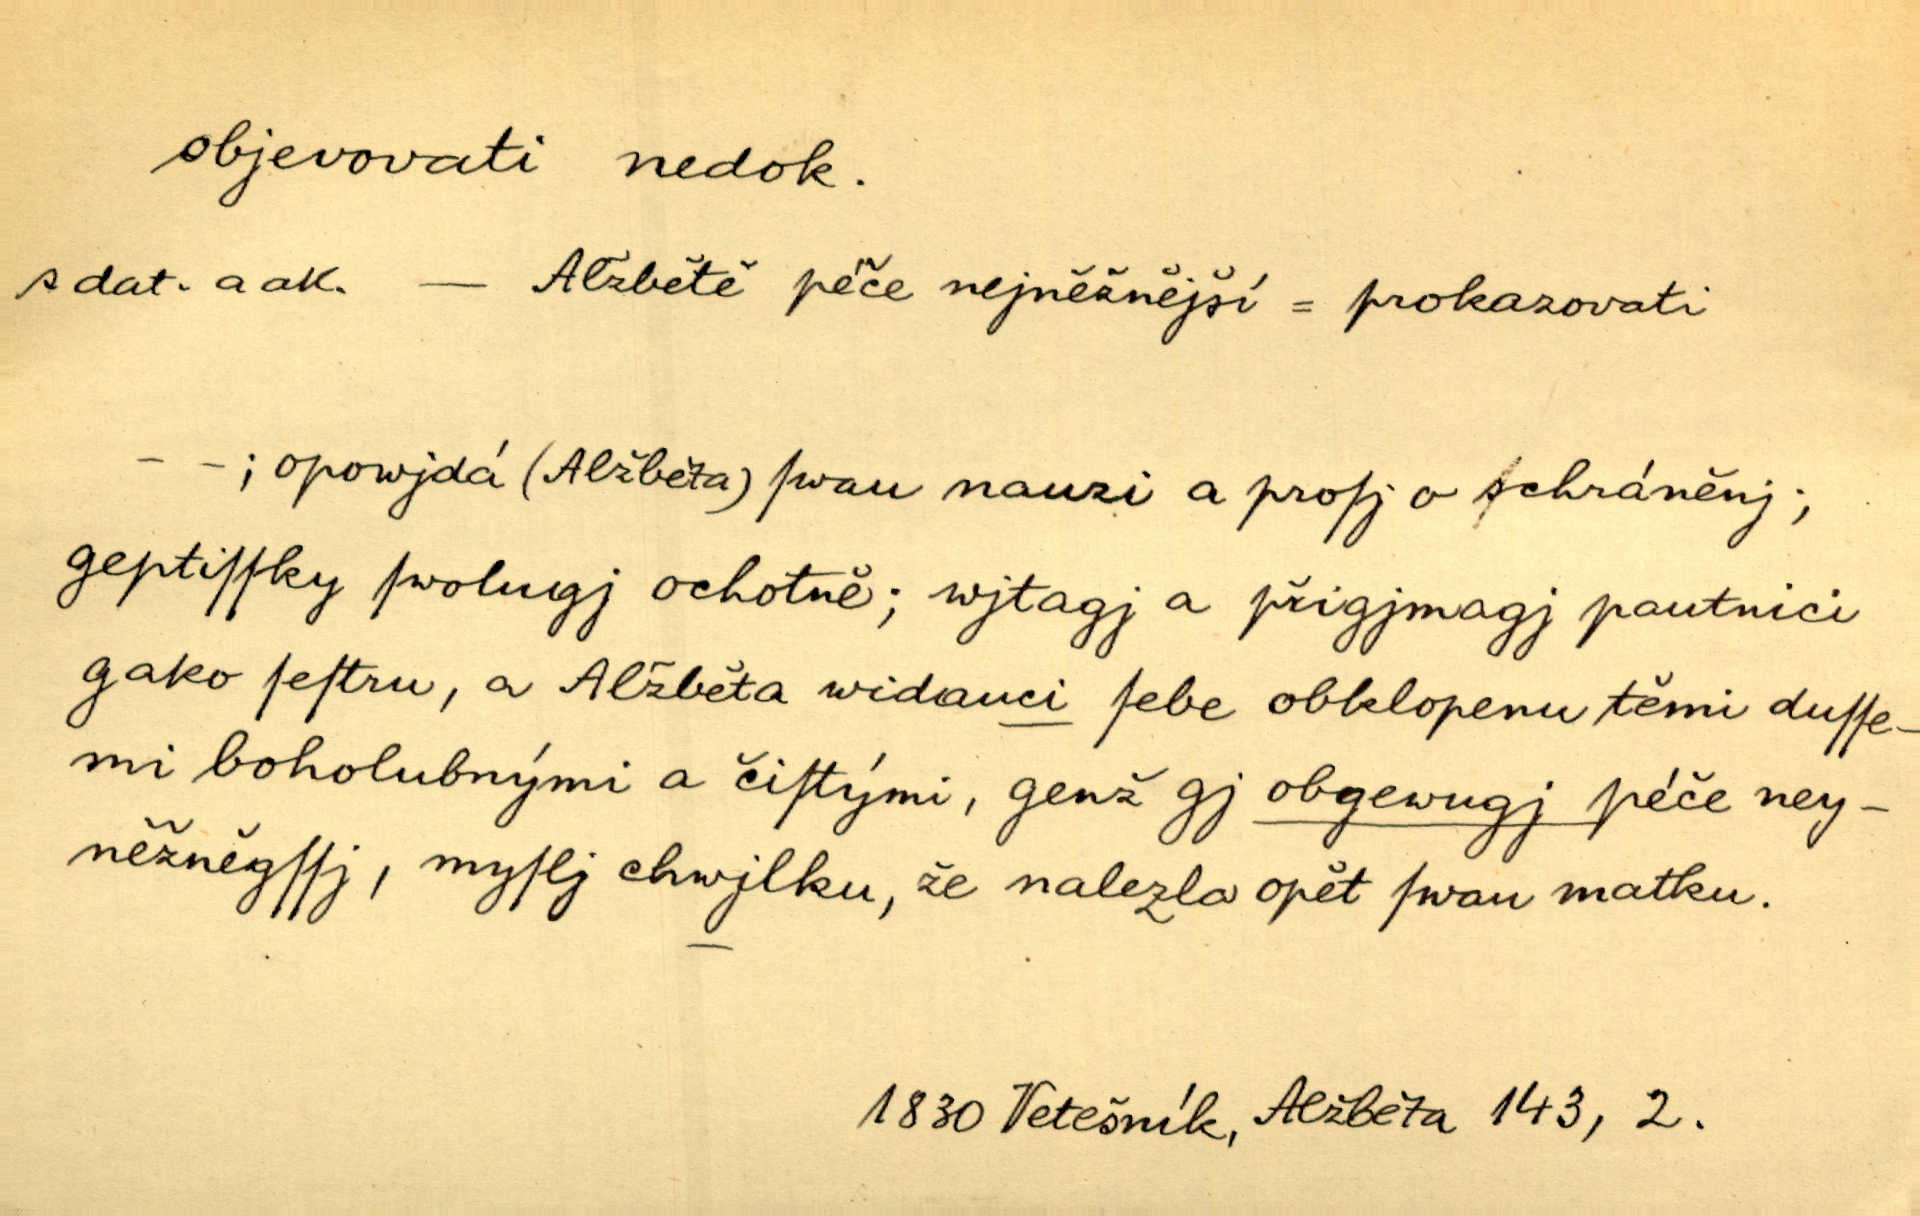 objevovati nedok.
s dat. a ak. — Alžbětě péče nejněžnější = prokazovati
– –; opowjdá (Alžběta) ſwau nauzi a proſj o schráněnj;
geptiſſky ſwolugj ochotně; wjtagj a přigjmagj pautnici
gako ſeſtru, a Alžběta widauci ſebe obklopenu těmi duſſe-
mi boholubnými a čiſtými, genž gj obgewugj péče ney-
něžněgſſj, myſlj chwjlku, že nalezla opět ſwau matku.
1830 Vetešník, Alžběta 143, 2.